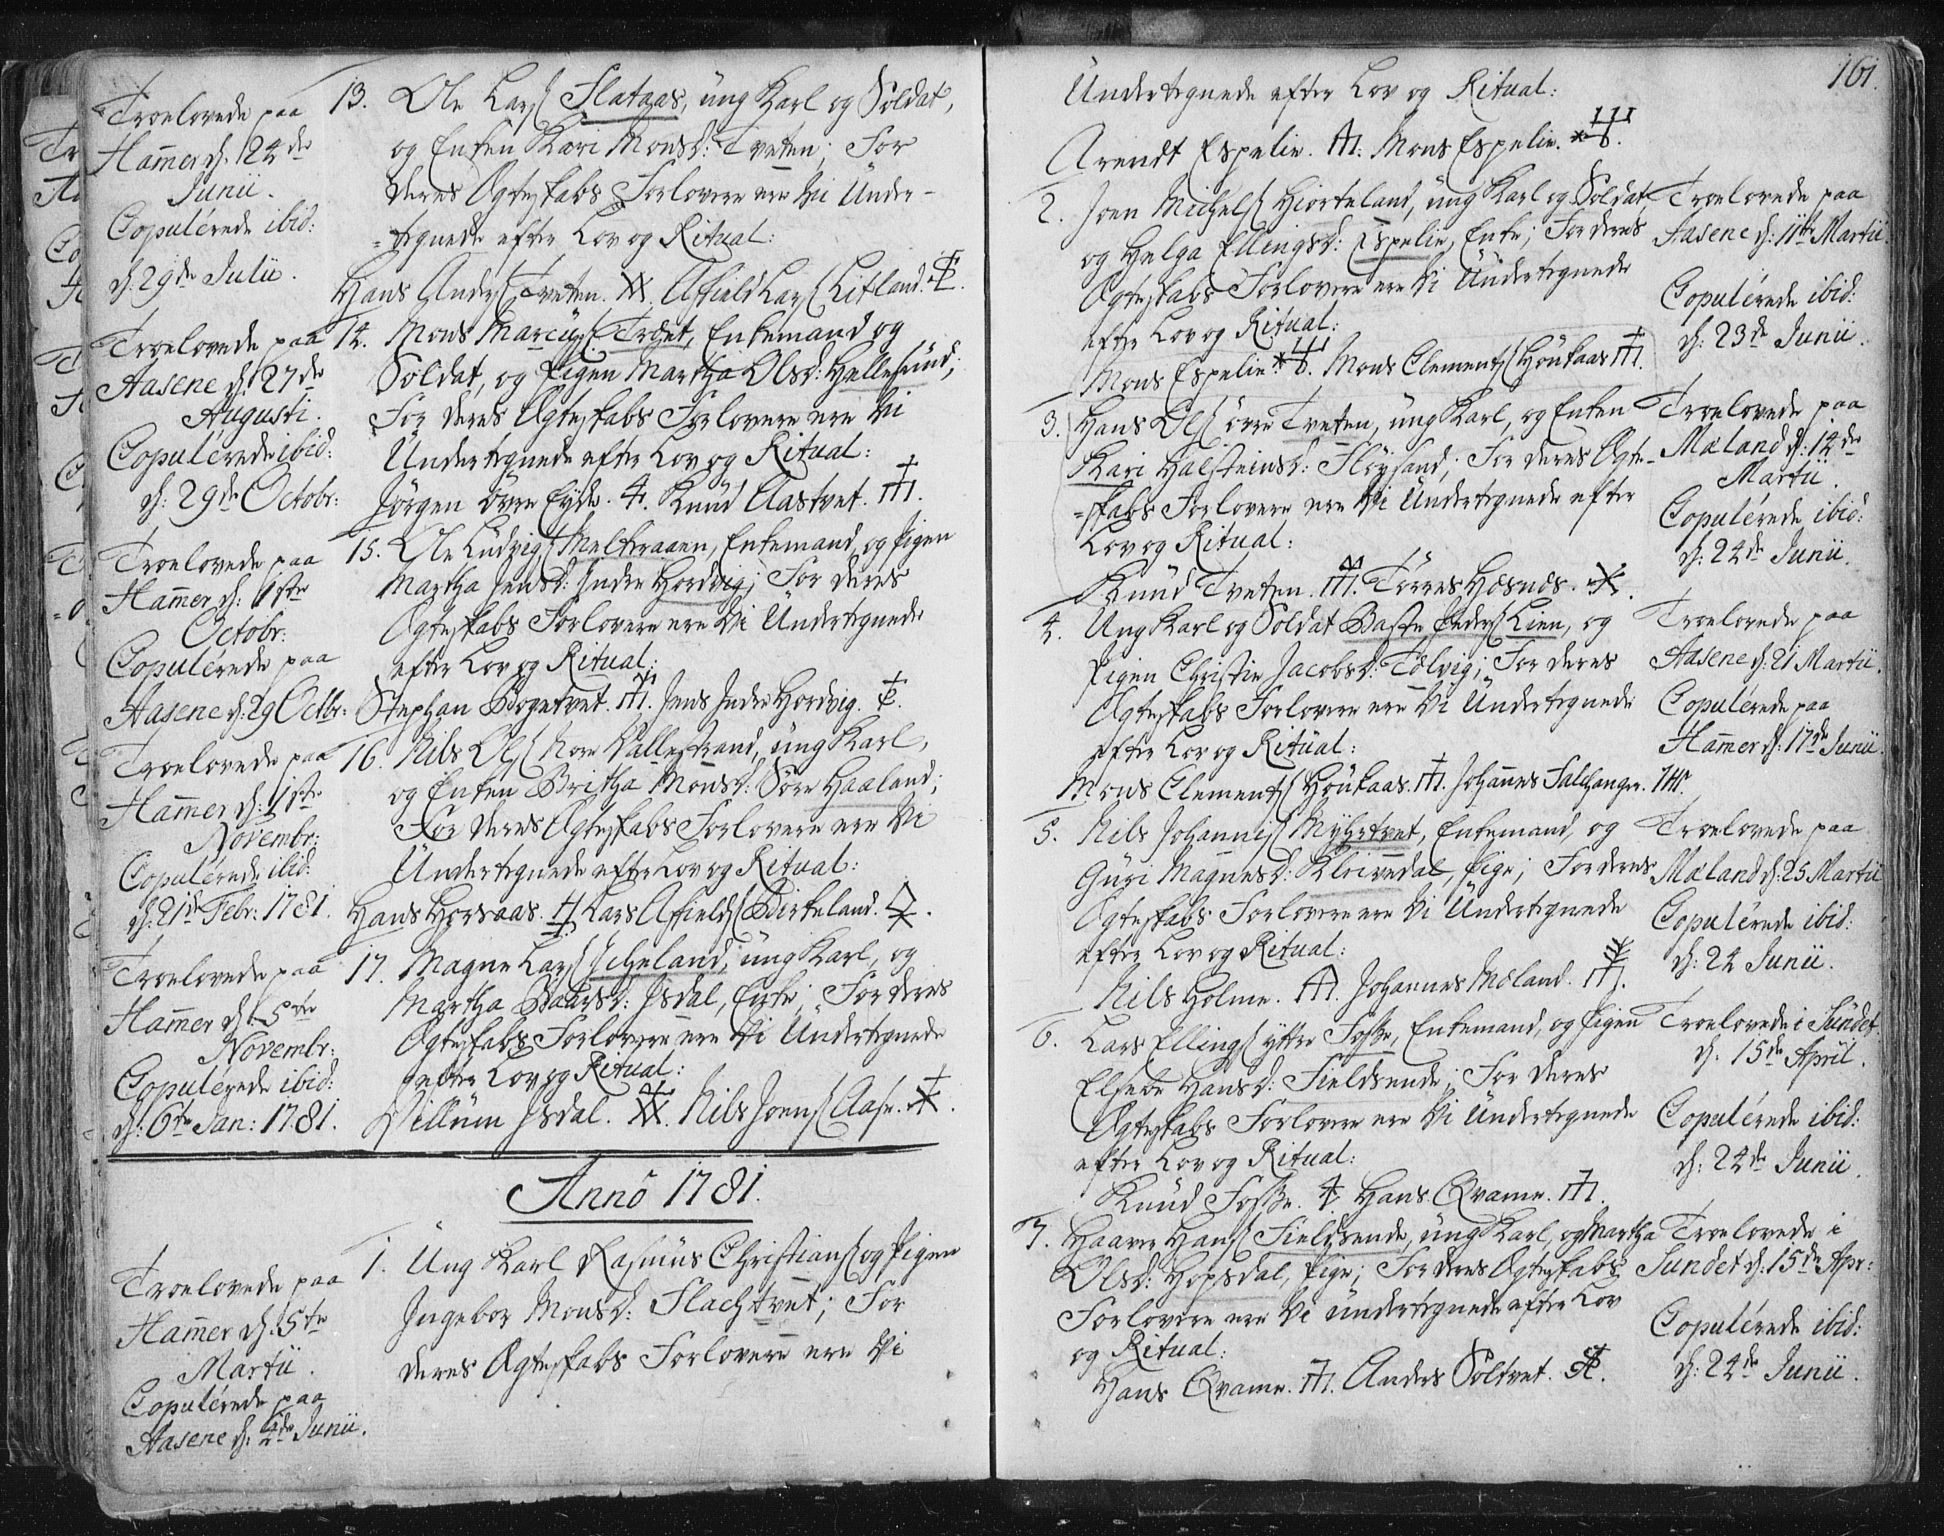 Troelovede paa
Ham̄er d. 24de
Junii.
Copulérede ibid:
d. 29de Julii.
13. Ole Lars Flataas, ung Karl og Soldat,
og Enken Kari Monsd: Tveten; For
deres Ægteskabs Forlovere ere Vi Under-
=tegnede efter Lov og Ritual:
Hans Anders Tveten. Affield Lars Litland.
Troelovede paa
Aasene d: 27de
Augusti.
Copulérede ibid:
d: 29de Octobr:
14. Mons Marcus Træet, Enkemand og
Soldat, og Pigen Martha Olsd: Hellesund;
For deres Ægteskabs Forlovere ere Vi
Undertegnede efter Lov og Ritual:
Jørgen øvre Eyde. Knud Aastvet.
Troelovede paa
Ham̄er d: 1ste
Octobr:
Copulérede paa
Aasene d: 29 Octbr:
15. Ole Ludvigs Meltraaen, Enkemand, og Pigen
Martha Jensd: Indre Hordvig; For deres
Ægteskabs Forlovere ere Vi Undertegnede
efter Lov og Ritual:
Stephan Bogetvet. Jens Indre Hordvig.
Troelovede paa
Ham̄er d: 1ste
Novembr:
Copulérede ibid:
d: 21de Febr: 1781.
16. Nils Ols Nore Vallestrand, ung Karl,
og Enken Britha Monsd: Søre Haaland;
For deres Ægteskabs Forlovere ere Vi
Undertegnede efter Lov og Ritual:
Hans Horsaas. Lars Affields Birkeland.
Troelovede paa
Ham̄er d: 5te
Novembr:
Copulérede ibid:
d: 6te Jan: 1781.
17. Magne Lars Icheland, ung Karl, og
Martha Baarsd: Isdal, Enke; For deres
Ægteskabs Forlovere ere Vi Undertegnede
efter Lov og Ritual:
Villum Isdal. Nils Joens Aase.
Anno 1781.
Troelovede paa
Ham̄er d: 5te
Martii.
Copulérede paa
Aasene d: 4de Junii.
1. Ung Karl Rasmus Christians og Pigen
Ingebor Monsd: Flachtvet; For
deres Ægteskabs Forlovere ere Vi
161.
Undertegnede efter Lov og Ritual:
Arendt Espelie. Mons Espelie.
2. Joen Michels Hiorteland, ung Karl og Soldat,
og Helga Ellingsd: Espelie, Enke; For deres
Ægteskabs Forlovere ere Vi Undertegnede
efter Lov og Ritual:
Mons Espelie. Mons Clements Houkaas.
Troelovede paa
Aasene d: 11te Martii.
Copulérede ibid:
d: 23de Junii.
3. Hans Ols øvre Tveten, ung Karl, og Enken
Kari Halsteinsd: Fløysand; For deres Ægte-
=skabs Forlovere ere Vi Undertegnede efter
Lov og Ritual:
Knud Tveten. Tørres Hæsnæs.
Troelovede paa
Mæland d: 14de
Martii.
Copulérede ibid:
d: 24de Junii.
4. Ung Karl og Soldat Basse Peders Lien, og
Pigen Christin Jacobsd: Tolvig; For deres
Ægteskabs Forlovere ere Vi Undertegnede
efter Lov og Ritual:
Mons Clements Houkaas. Johannes Salhanger.
Troelovede paa
Aasene d: 21 Martii.
Copulérede paa
Ham̄er d: 17de Junii.
5. Nils Johannis Myhrtvet, Enkemand, og
Guri Magnesd: Kleivedal, Pige; For deres
Ægteskabs Forlovere ere Vi Undertegnede
efter Lov og Ritual:
Nils Holme. Johannes Mæland.
Troelovede paa
Mæland d: 25 Martii
Copulérede ibid:
d: 24 Junii.
6. Lars Ellings yttre Fosse, Enkemand, og Pigen
Elsebe Hansd: Fieldsende; For deres
Ægteskabs Forlovere ere Vi Undertegnede
efter Lov og Ritual:
Knud Fosse. Hans Qvamme.
Troelovede i Sundet
d: 15de April.
Copulérede ibid:
d: 24de Junii.
7. Haaver Hans Fieldsende, ung Karl, og Martha
Olsd: Hopsdal, Pige; For deres Ægteskabs
Forlovere ere Vi undertegnede efter Lov
og Ritual:
Hans Qvamme. Anders Soltvet.
Troelovede i
Sundet d: 15de Apr:
Copulérede ibid:
d: 24de Junii.